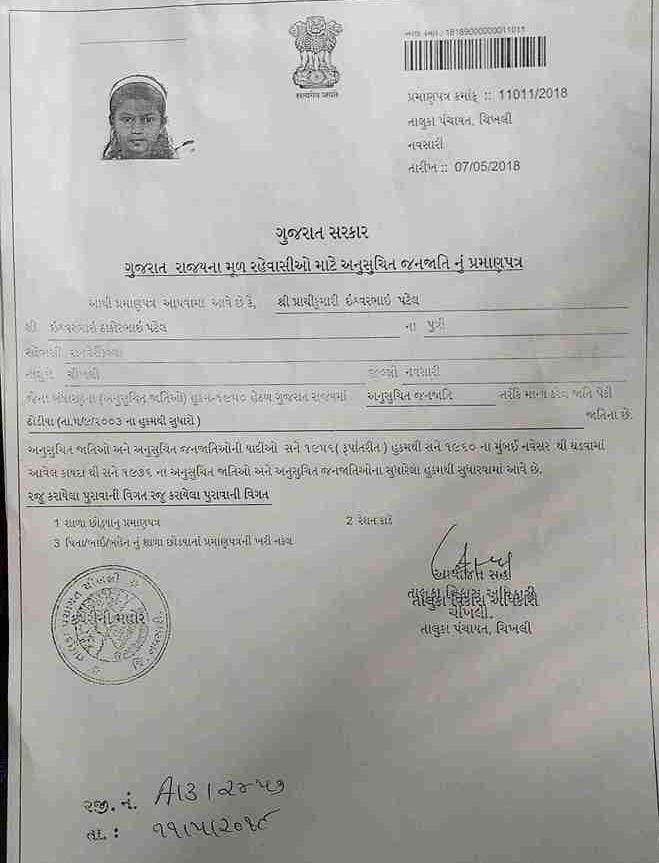 सत्यमेव जयते
અરજી ક્રમાંક : 18189000000011011
પ્રમાણપત્ર ક્રમાંક :: 11011/2018
તાલુકા પંચાયત, ચિખલી
નવસારી
તારીખ :: 07/05/2018
ગુજરાત સરકાર
ગુજરાત રાજયના મૂળ રહેવાસીઓ માટે અનુસુચિત જનજાતિ નું પ્રમાણપત્ર
આથી પ્રમાણપત્ર આપવામા આવે છે કે, શ્રી પ્રાચીકુમારી ઇશ્વરભાઇ પટેલ
શ્રી ઇશ્વરભાઇ ઠાકોરભાઇ પટેલ ના પુત્રી
રહેવાસી
તાલુકો ચીખલી જીલ્લો નવસારી
જેના બંધારણના (અનુસુચિત જાતિઓ) હુકમ-૧૯૫૦ હેઠળ ગુજરાત રાજયમાં અનુસુચિત જનજાતિ તરીકે માન્ય કરેલ જાતિ પેકી
ઢોડીયા (તા.૫/૯/૨૦૦૩ ના હુકમથી સુધારો ) જાતિના છે.
અનુસુચિત જાતિઓ અને અનુસુચિત જનજાતિઓની યાદીઓ સને ૧૯૫૬( રૂપાંતરીત ) હુકમથી સને ૧૯૬૦ ના મુંબઈ નવેસર થી ઘડવામાં
આવેલ કાયદા થી સને ૧૯૭૬ ના અનુસુચિત જાતિઓ અને અનુસુચિત જનજાતિઓના સુધારેલા હુકમથી સુધારવામાં આવે છે.
રજુ કરાયેલા પુરાવાની વિગત રજુ કરાયેલા પુરાવાની વિગત
1 શાળા છોડયાનુ પ્રમાણપત્ર 2 રેશન કાર્ડ
3 પિતા/ભાઈ/બહેન નું શાળા છોડવાનાં પ્રમાણપત્રની ખરી નકલ
તાલુકા વિકાસ અધિકારી
ચીખલી.
તાલુકા પંચાયત, ચિખલી
કચેરીની મહોર
તાલુકા પંચાયત ચીખલી
જિ. નવસારી
રજી. નં. A/3/૨૪૫૭
તા. : ૧૧/૫/૨૦૧૮